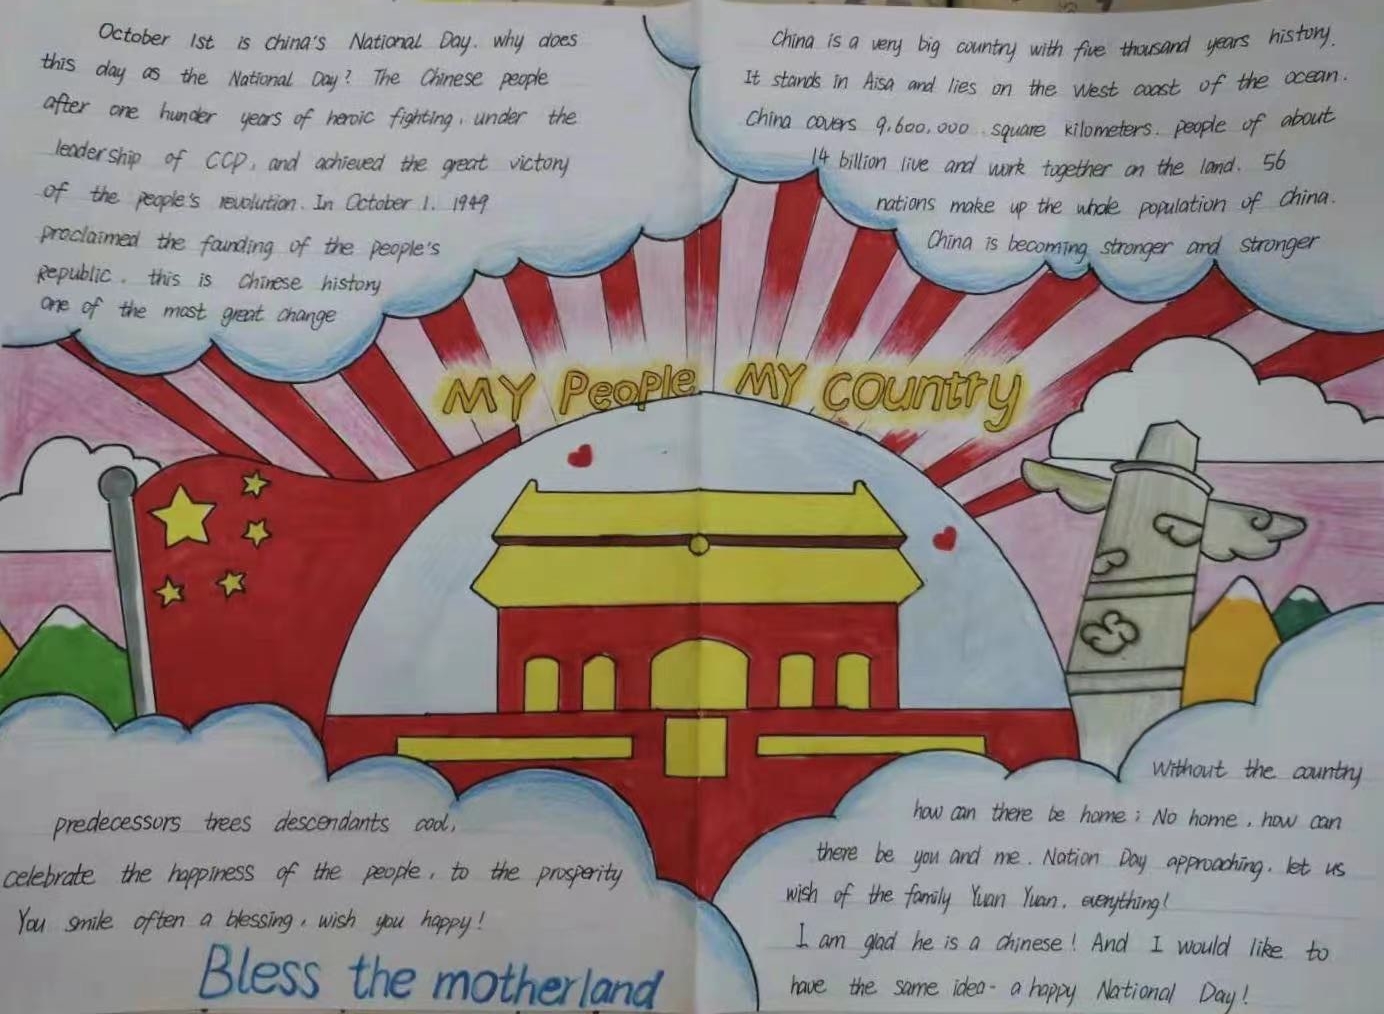 October 1st is China's National Day. why does
this day as the National Day? The Chinese people
after one hunder years of heroic fighting, under the
leadership of CCP, and achieved the great victory
of the people's revolution. In October 1. 1949
proclaimed the founding of the people's
Republic. this is Chinese history
one of the most great change
China is a very big country with five thousand years history.
It stands in Aisa and lies on the West coast of the ocean.
China covers 9,600,000 square kilometers. people of about
14 billion live and work together on the land. 56
nations make up the whole population of China.
China is becoming stronger and stronger
MY People MY country
predecessors trees descendants cool,
celebrate the happiness of the people, to the prosperity
You smile often a blessing, wish you happy!
Bless the motherland
Without the country
how can there be home; No home, how can
there be you and me. Nation Day approaching, let us
wish of the family Yuan Yuan, everything!
I am glad he is a chinese! And I would like to
have the same idea- a happy National Day!